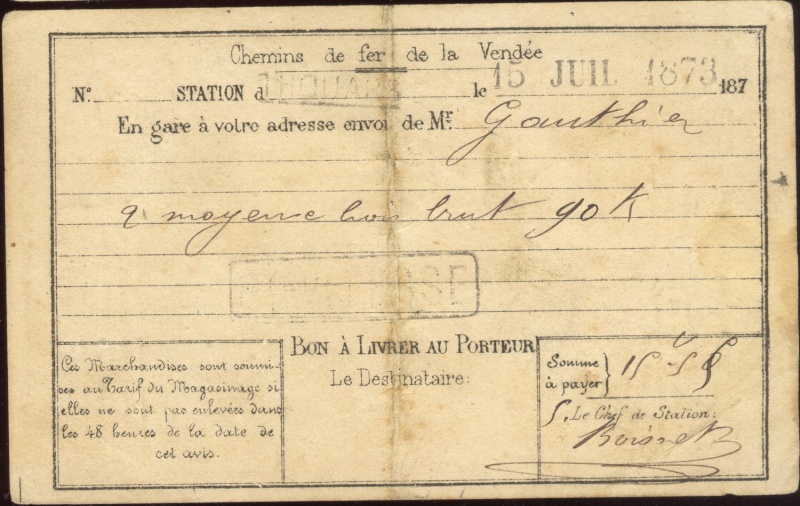 Chemins de fer de la Vendée
N° STATION d THOUARS le 15 JUIL 1873 187
En gare à votre adresse envoi de Mr. Gauthier
2 moyene bois brut 90 k
BON À LIVRER AU PORTEUR
Le Destinataire:
Ces Marchandises sont soumi-
ses au Tarif du Magasinage si
elles ne sont pas enlevées dans
les 48 heures de la date de
cet avis.
Somme
à payer } 15
Le Chef de Station: